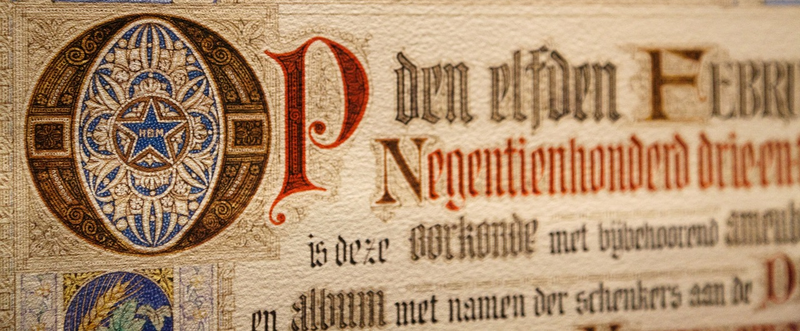 OP den elfden FEBRU
Negentienhonderd drie-en-
is deze oorkonde met bijbehoorend
en album met namen der schenkers aan de
HBM